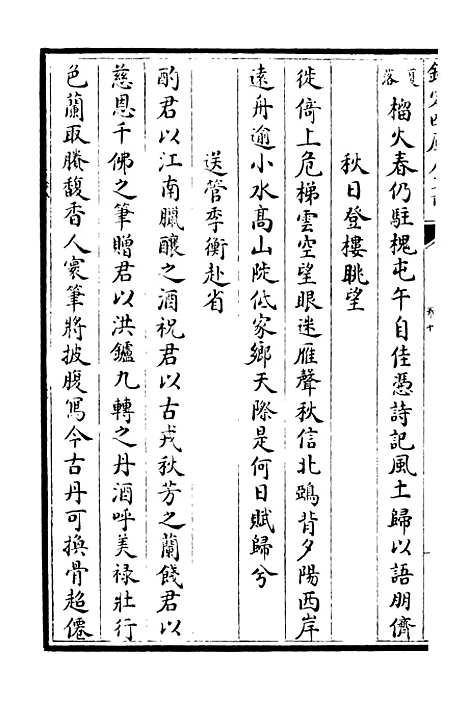 欽定四庫全書
卷十
夏落
榴火春仍駐槐屯午自佳憑詩記風土歸以語朋儕
秋日登樓眺望
徙倚上危梯雲空望眼迷雁聲秋信北鴉背夕陽西岸
遠舟逾小水髙山陡低家鄉天際是何日賦歸兮
送管季衡赴省
酌君以江南臘釀之酒祝君以古戎秋芳之蘭餞君以
慈恩千佛之筆贈君以洪鑪九轉之丹酒呼美祿壯行
色蘭取騰馥香人寰筆將披腹寫今古丹可換骨超僊